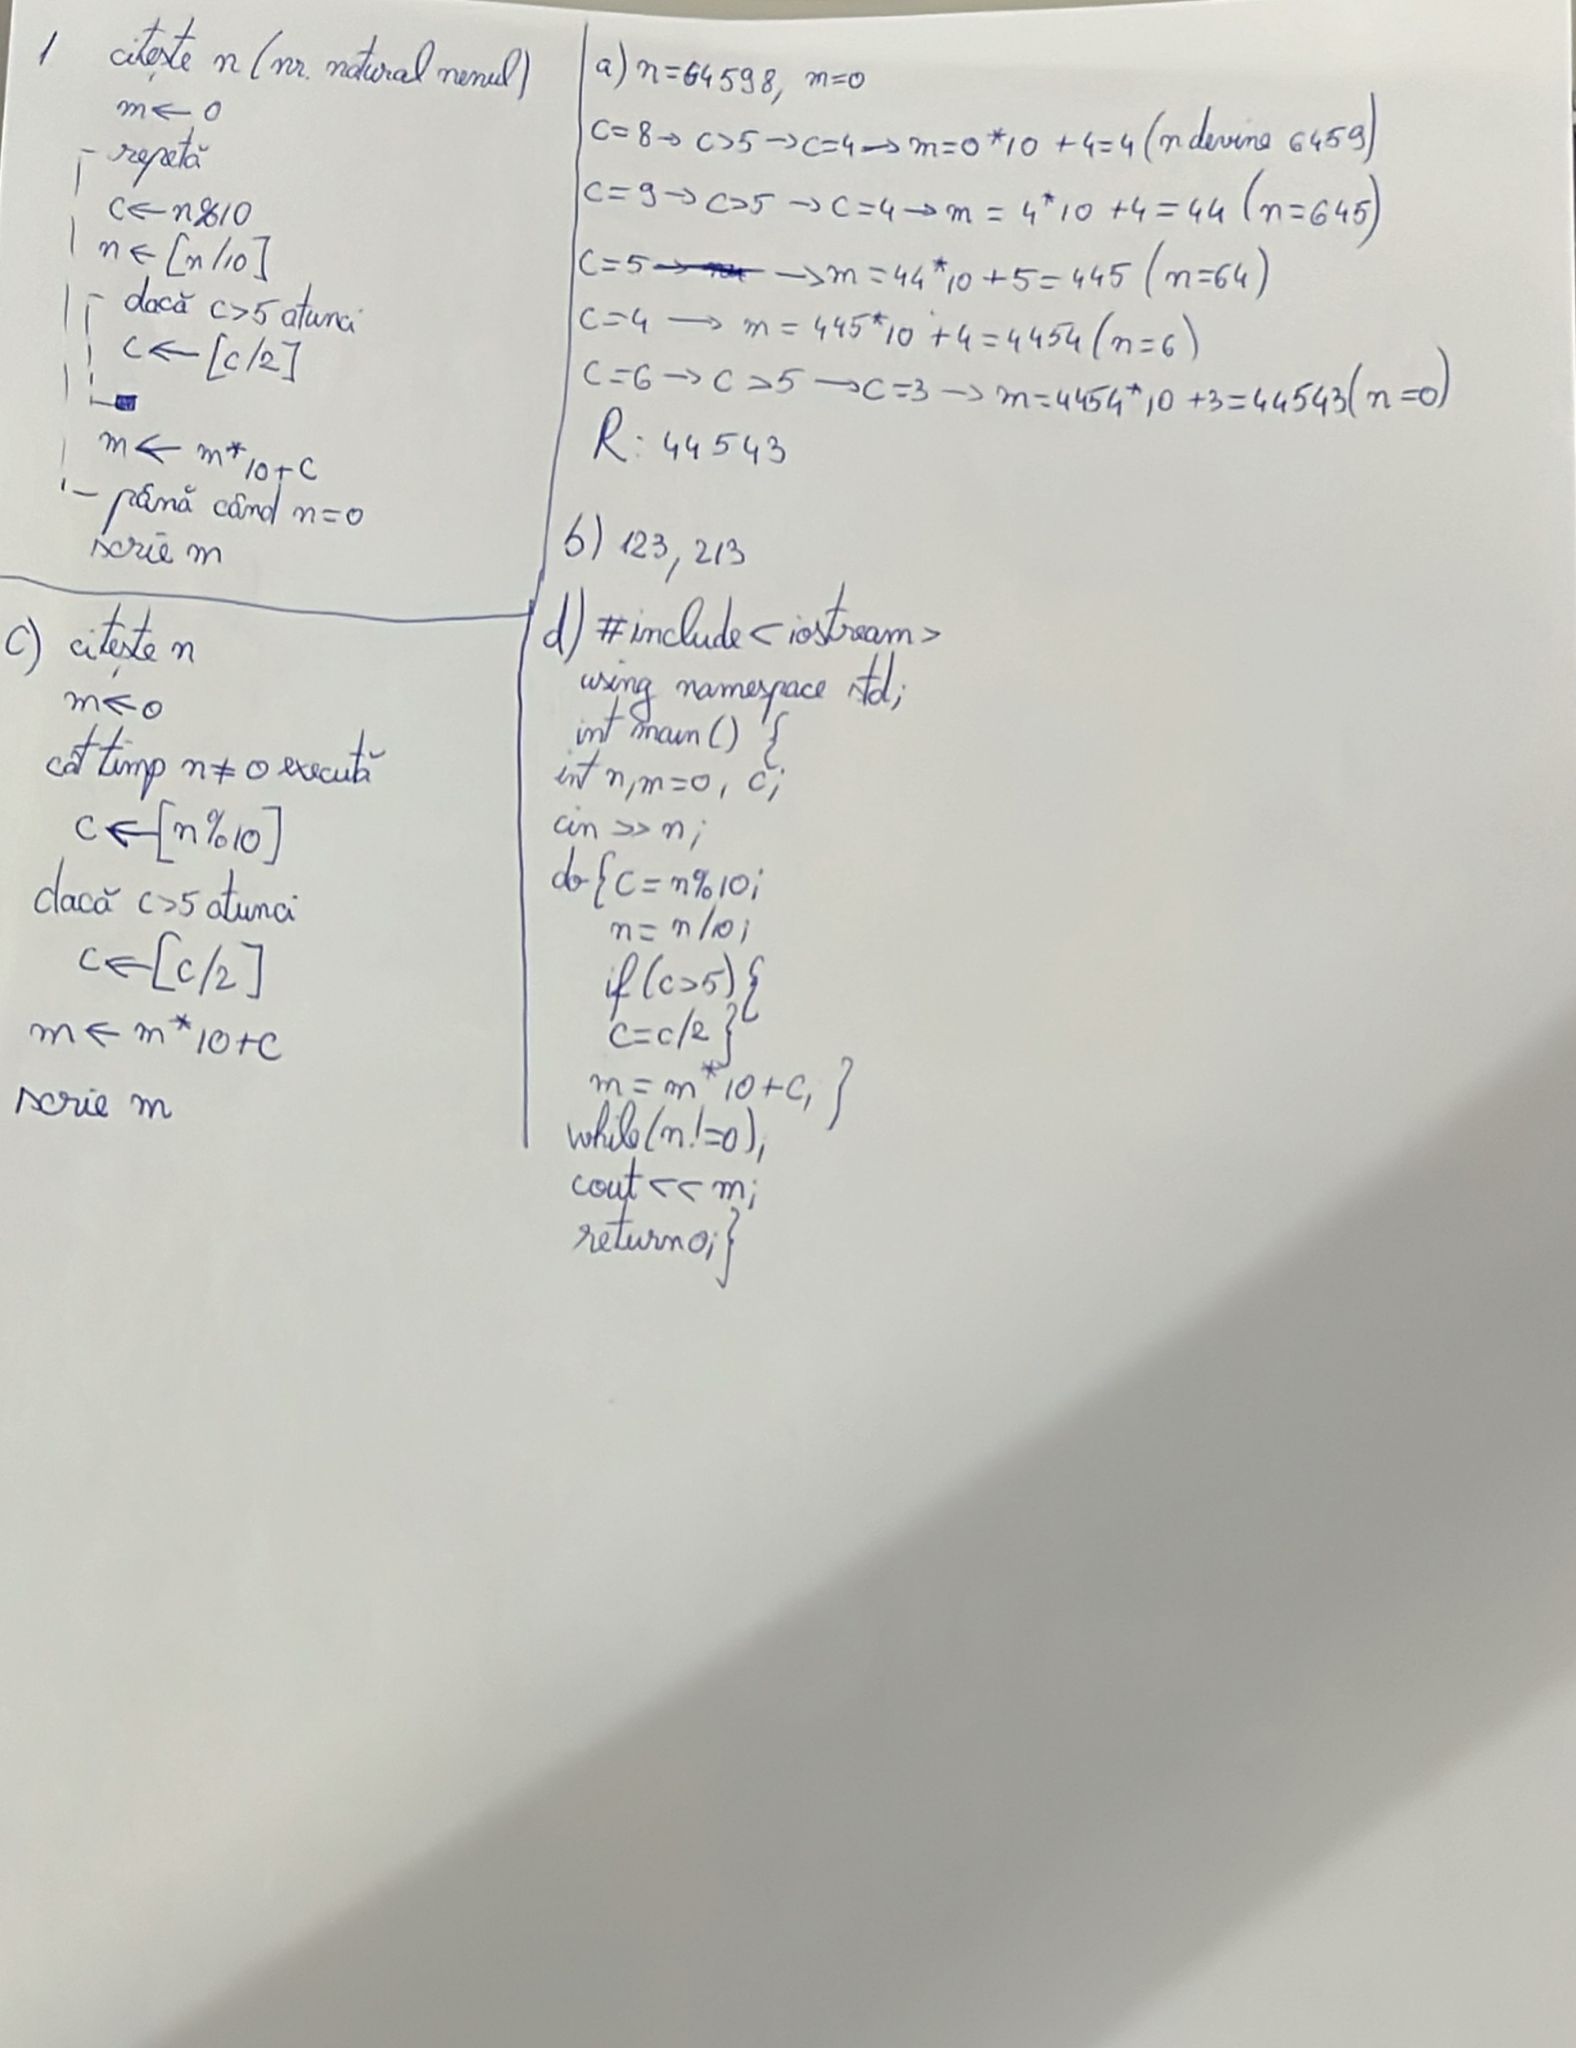 1 citește n (nr. natural nenul)
m ← 0
repetă
c ← n%10
n ← [n/10]
dacă c>5 atunci
c ← [c/2]
m ← m*10+c
până când n=0
scrie m
a) n=64598, m=0
c=8 → c>5 → c=4 → m=0*10+4=4 (n devine 6459)
c=9 → c>5 → c=4 → m=4*10+4=44 (n=645)
c=5 → m=44*10+5=445 (n=64)
c=4 → m=445*10+4=4454 (n=6)
c=6 → c>5 → c=3 → m=4454*10+3=44543 (n=0)
R: 44543
b) 123, 213
c) citește n
m ← 0
cât timp n≠0 execută
c ← [n%10]
dacă c>5 atunci
c ← [c/2]
m ← m*10+c
scrie m
d) #include <iostream>
using namespace std;
int main() {
int n,m=0, c;
cin >> n;
do{c=n%10;
n=n/10;
if(c>5){
c=c/2}
m=m*10+c; }
while(n!=0);
cout << m;
return 0;}